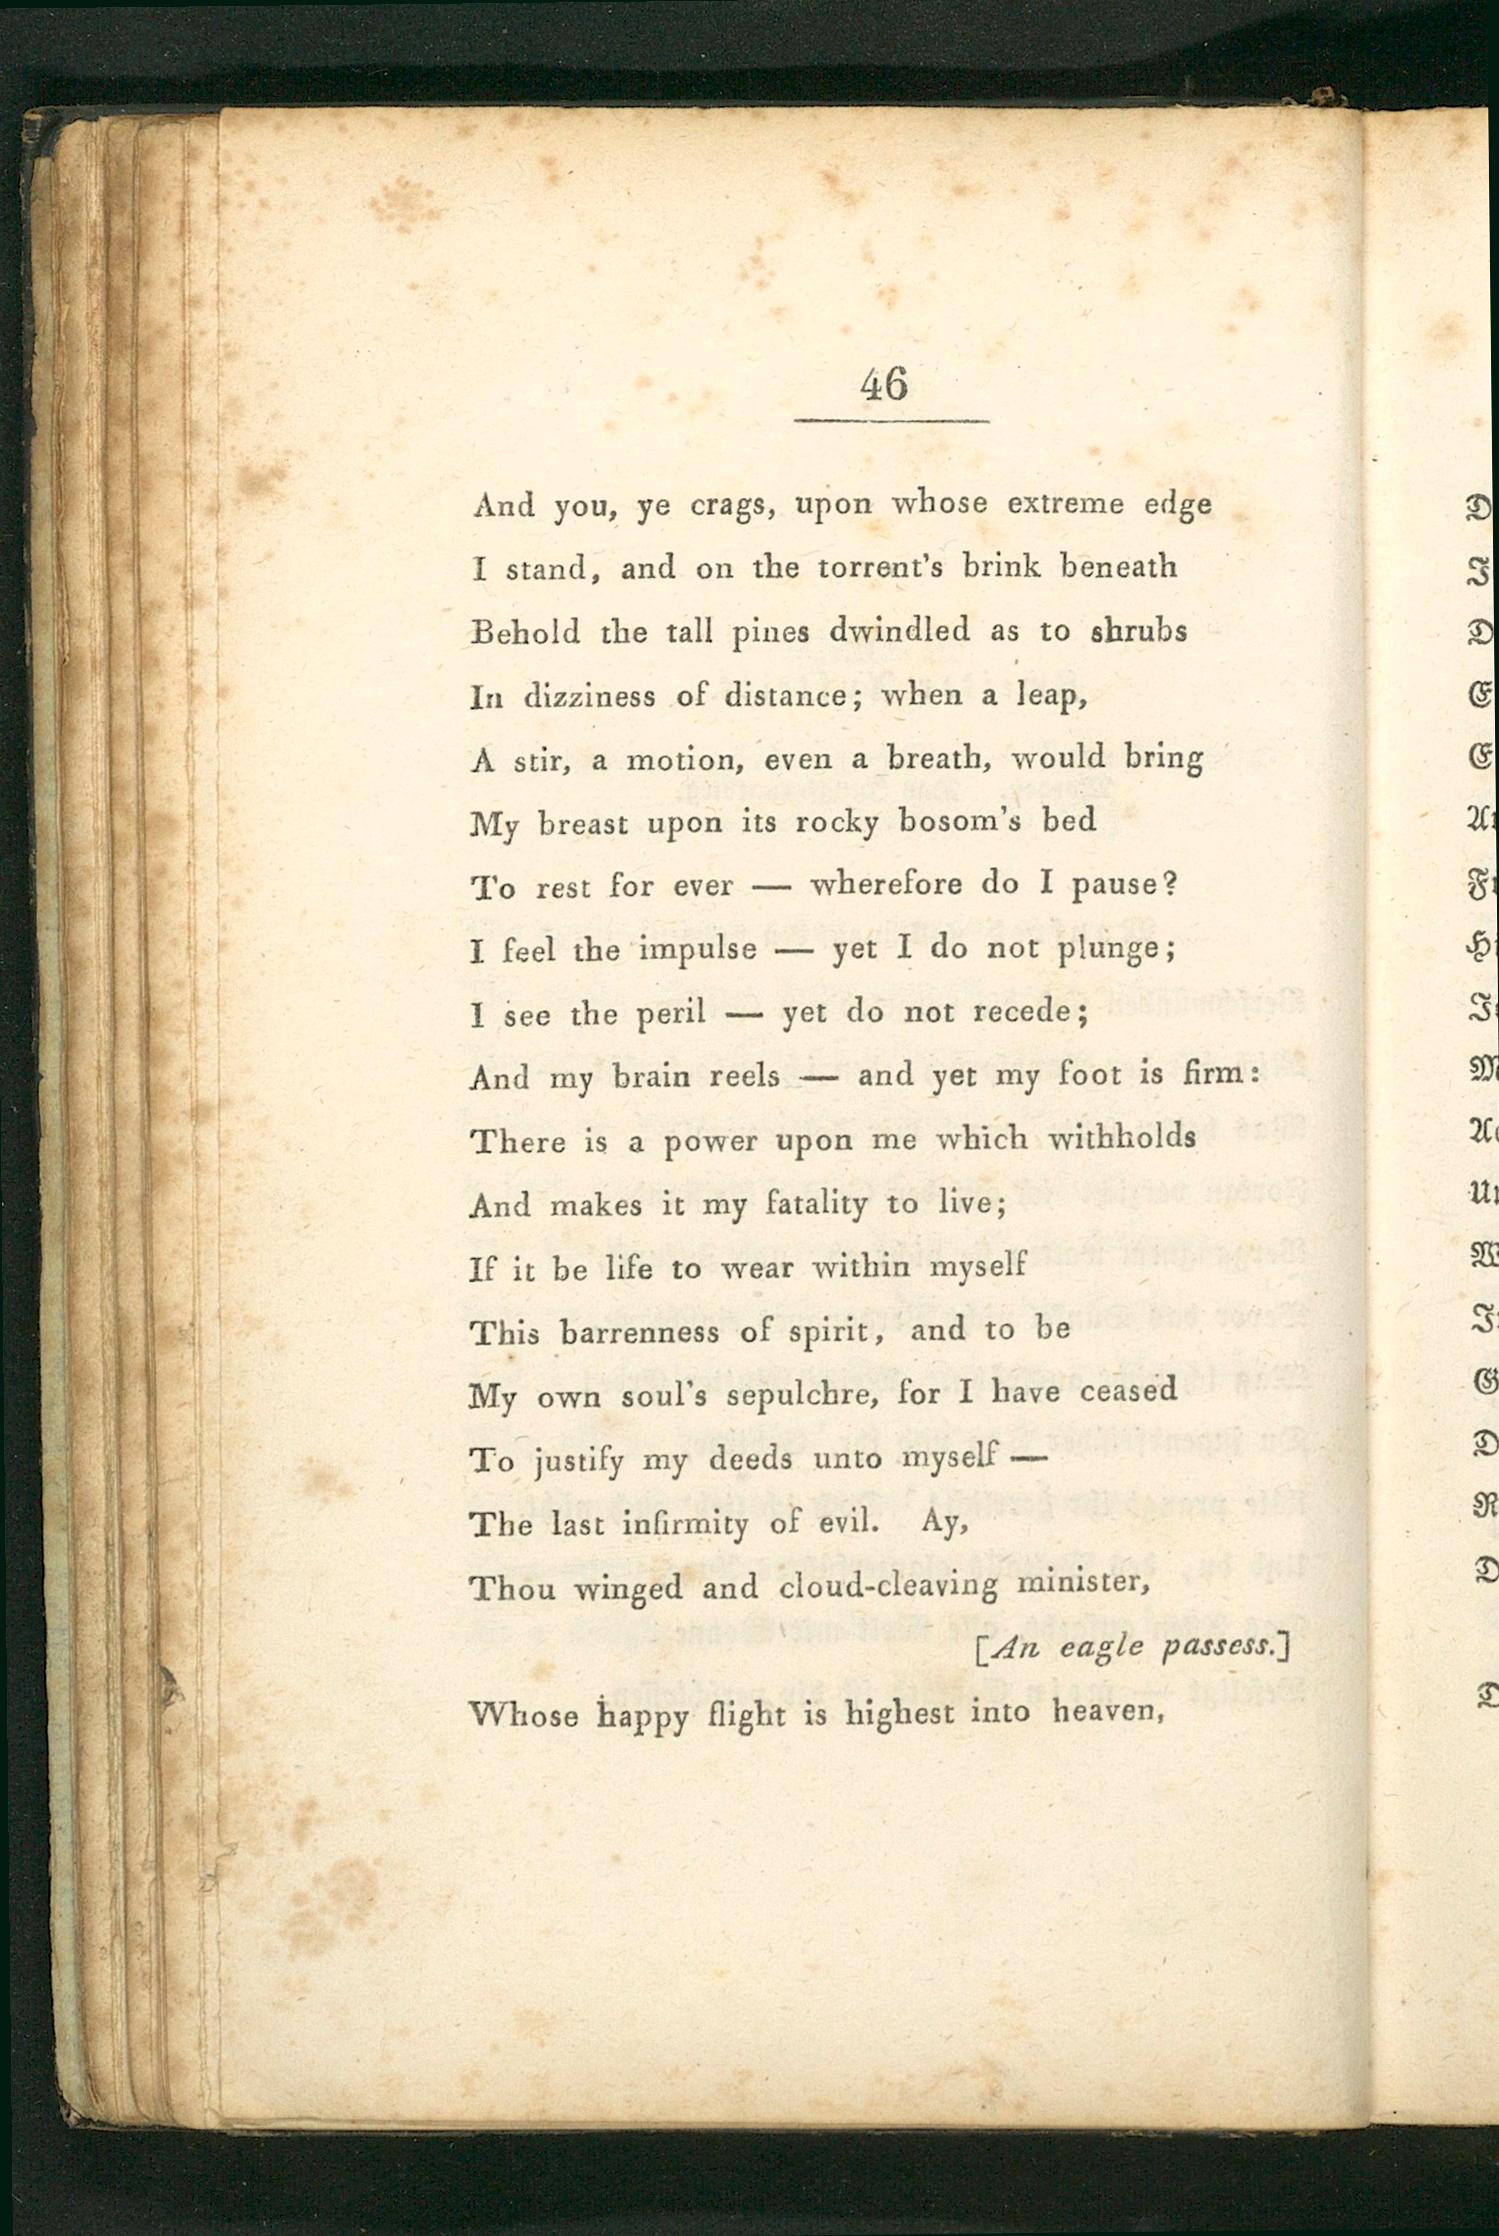 46
And you, ye crags, upon whose extreme edge
I stand, and on the torrent's brink beneath
Behold the tall pines dwindled as to shrubs
In dizziness of distance; when a leap,
A stir, a motion, even a breath, would bring
My breast upon its rocky bosom's bed
To rest for ever — wherefore do I pause?
I feel the impulse — yet I do not plunge;
I see the peril — yet do not recede;
And my brain reels — and yet my foot is firm:
There is a power upon me which withholds
And makes it my fatality to live;
If it be life to wear within myself
This barrenness of spirit, and to be
My own soul's sepulchre, for I have ceased
To justify my deeds unto myself —
The last infirmity of evil. Ay,
Thou winged and cloud-cleaving minister,
[An eagle passess.]
Whose happy flight is highest into heaven,